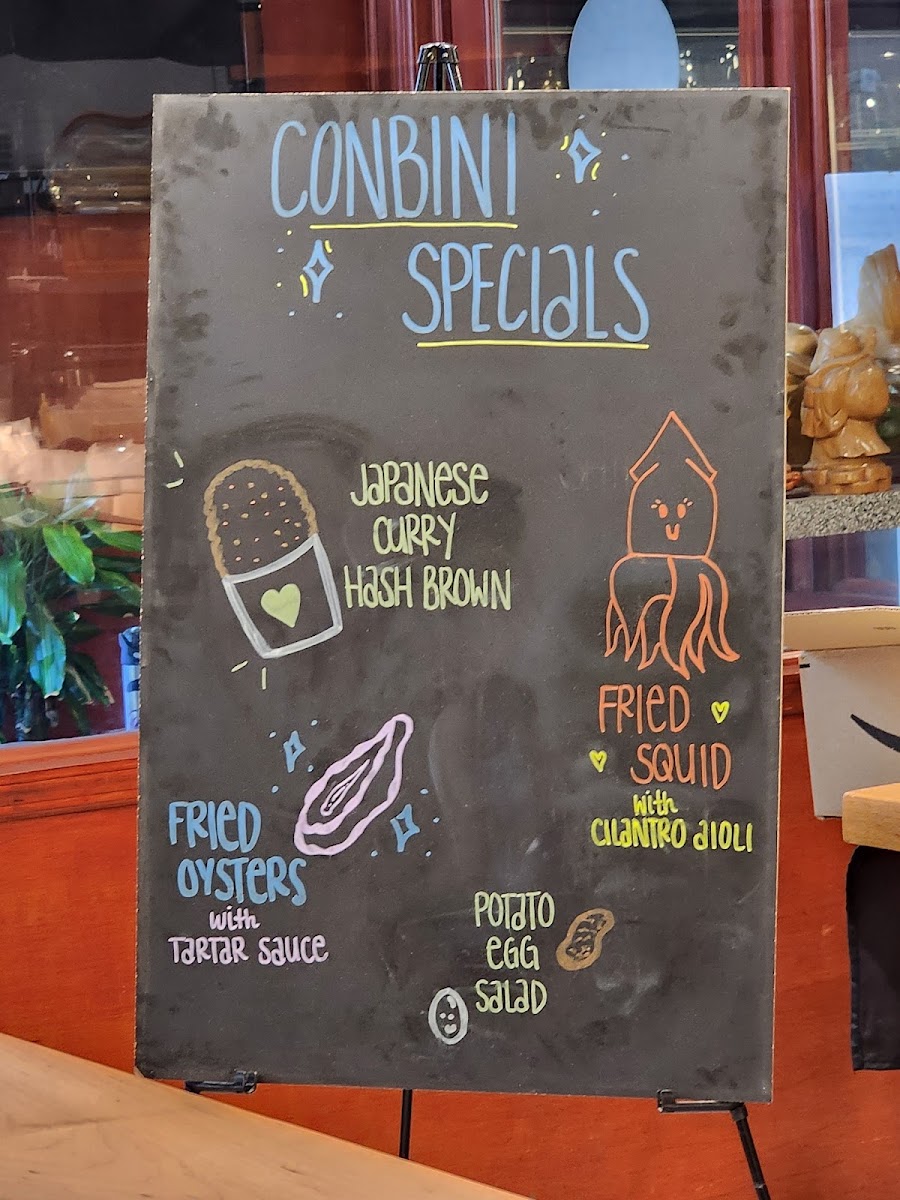 CONBINI
SPECIALS
JAPANESE
CURRY
HASH BROWN
FRIED
SQUID
with
CILANTRO AIOLI
FRIED
OYSTERS
with
TARTAR SAUCE
POTATO
EGG
SALAD